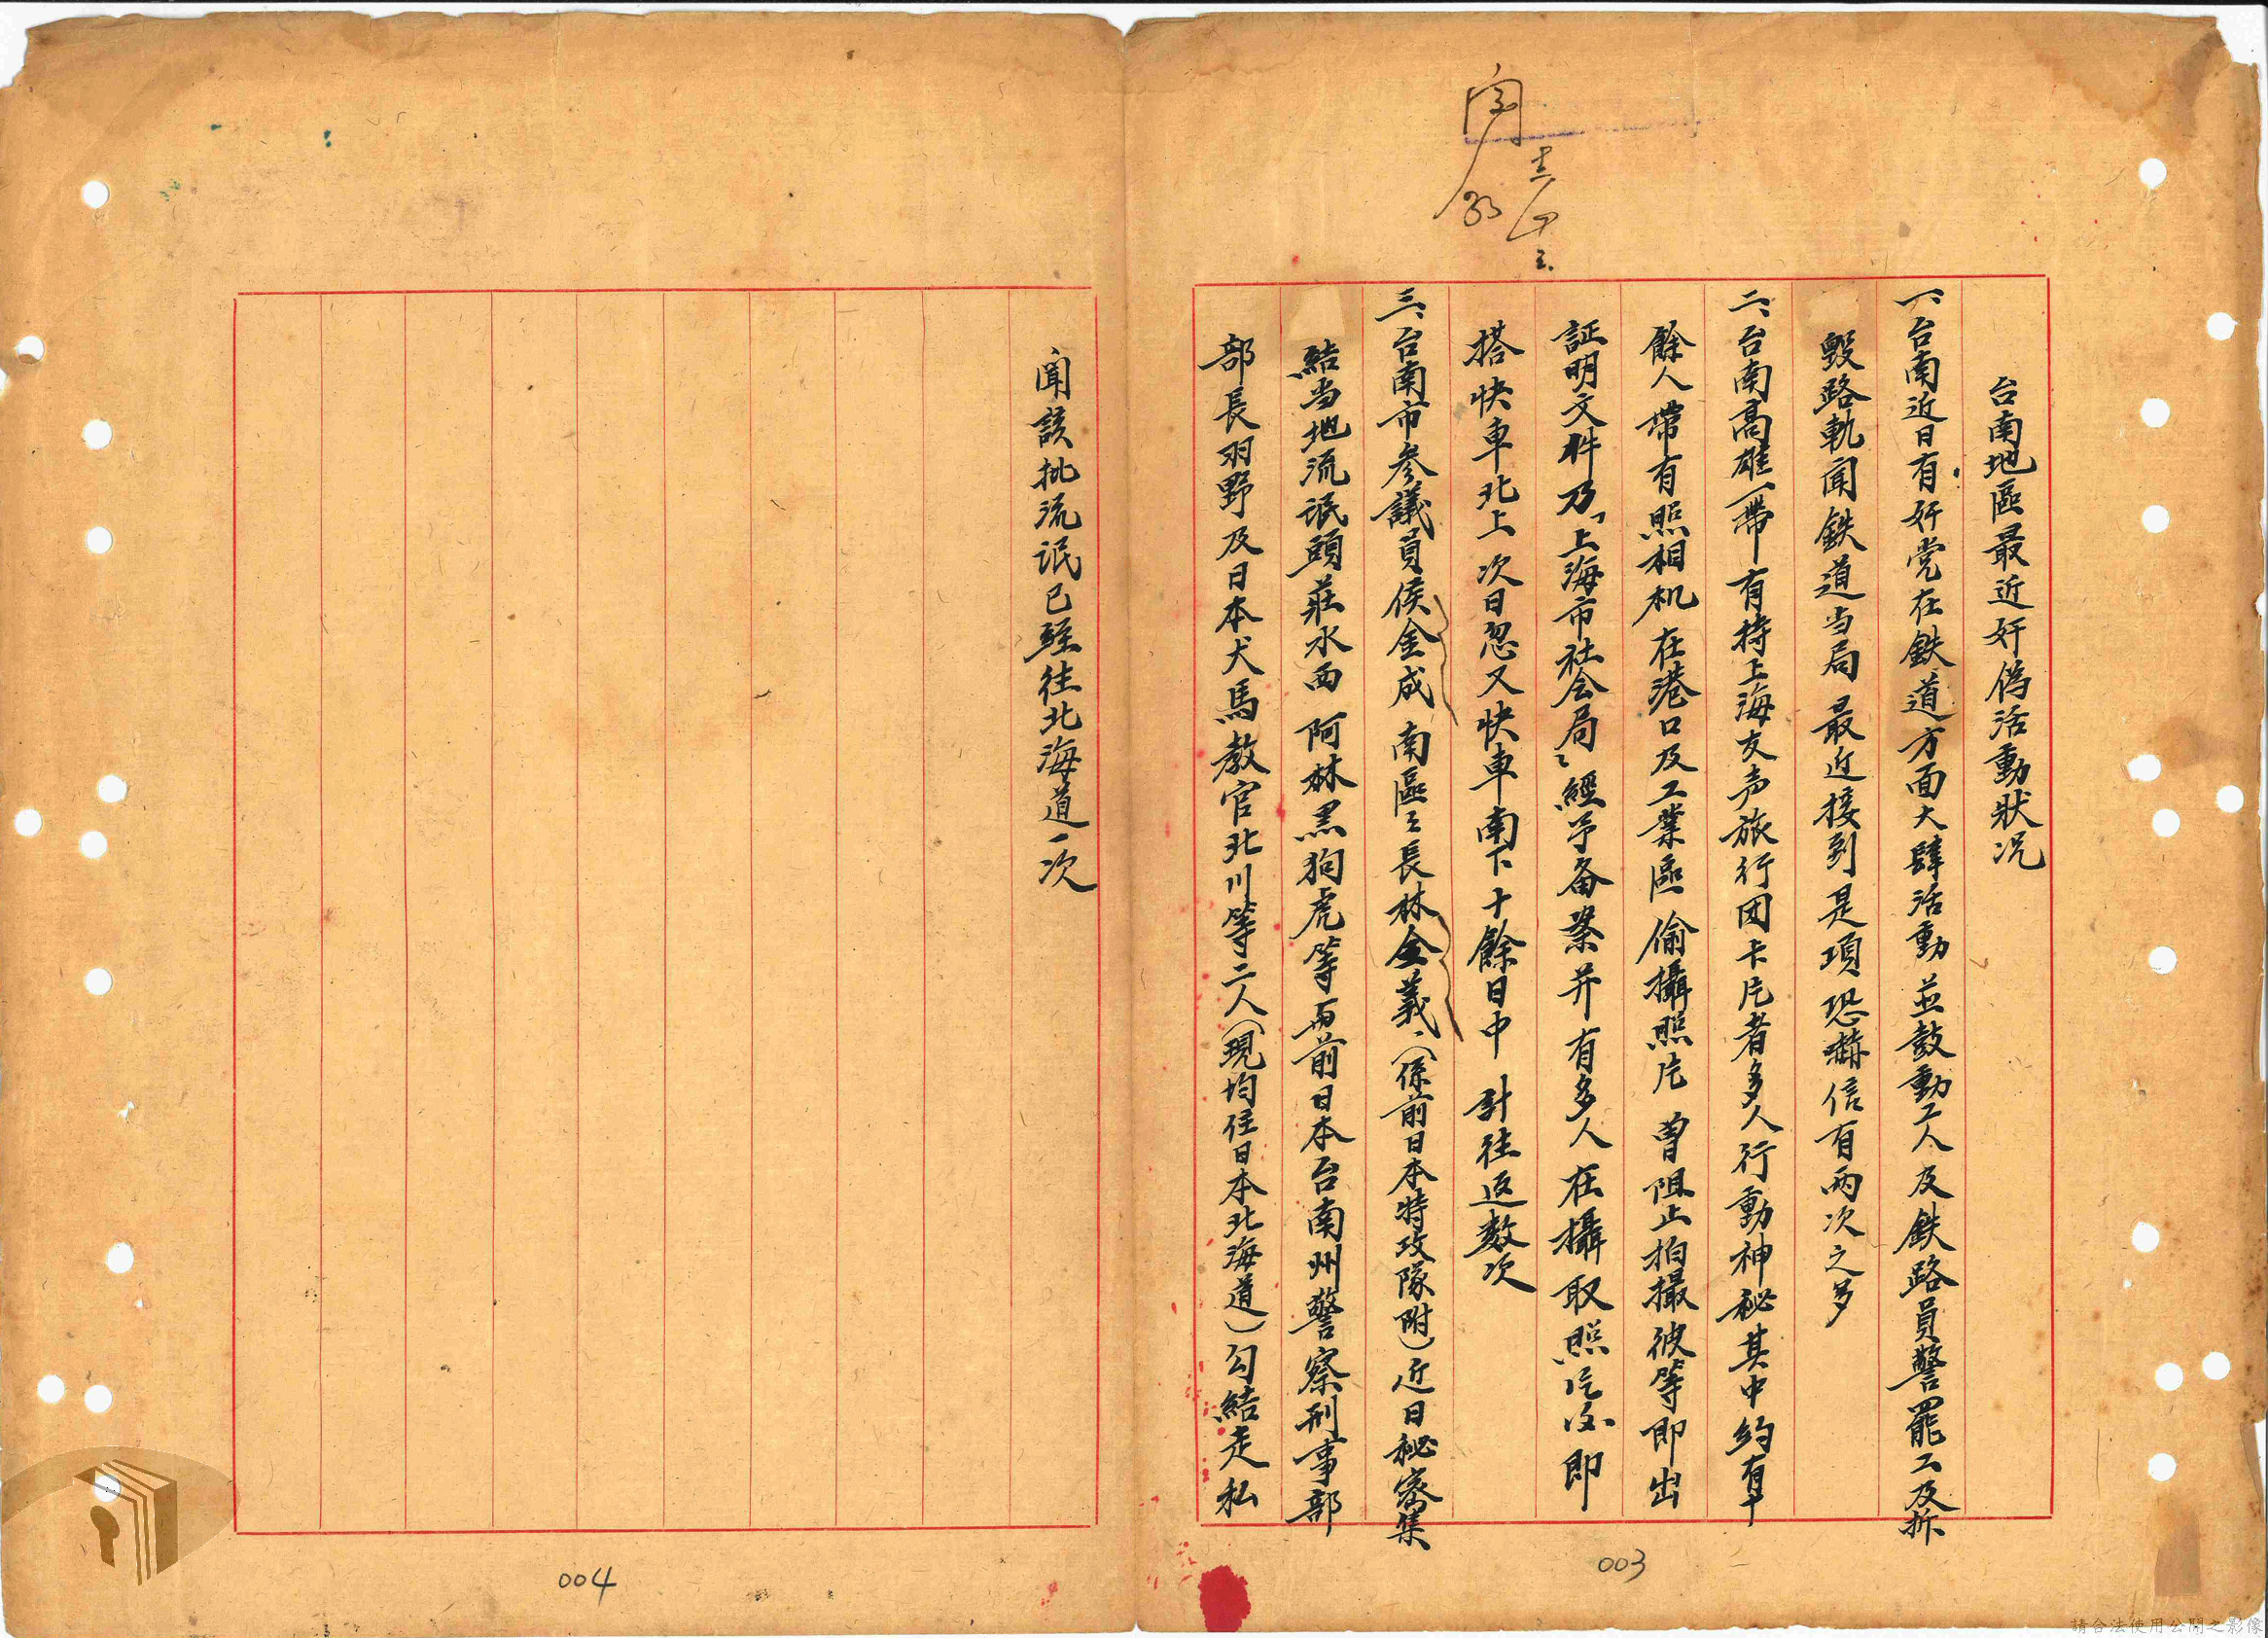 台南地區最近奸偽活動狀况
一、台南近日有奸党在鉄道方面大肆活動並鼓動工人及鉄路員警罷工及拆
毀路軌聞鉄道当局最近接到是項恐嚇信有両次之多
二、台南高雄一帶有持上海友声旅行团卡片者多人行動神秘其中約有十
餘人帶有照相机在港口及工業區偷攝照片曾阻止拍撮彼等即出
証明文件乃「上海市社会局」經予备案并有多人在攝取照片后即
搭快車北上次日忽又快車南下十餘日中計往返数次
三、台南市参議員侯全成南區々長林全義、(係前日本特攻隊附)近日秘密集
結当地流氓頭莊水西阿林黑狗虎等而前日本台南州警察刑事部
部長羽野及日本犬馬教官北川等二人(現均住日本北海道)勾結走私
聞該批流氓已經往北海道一次
003
004
請合法使用公開之影像